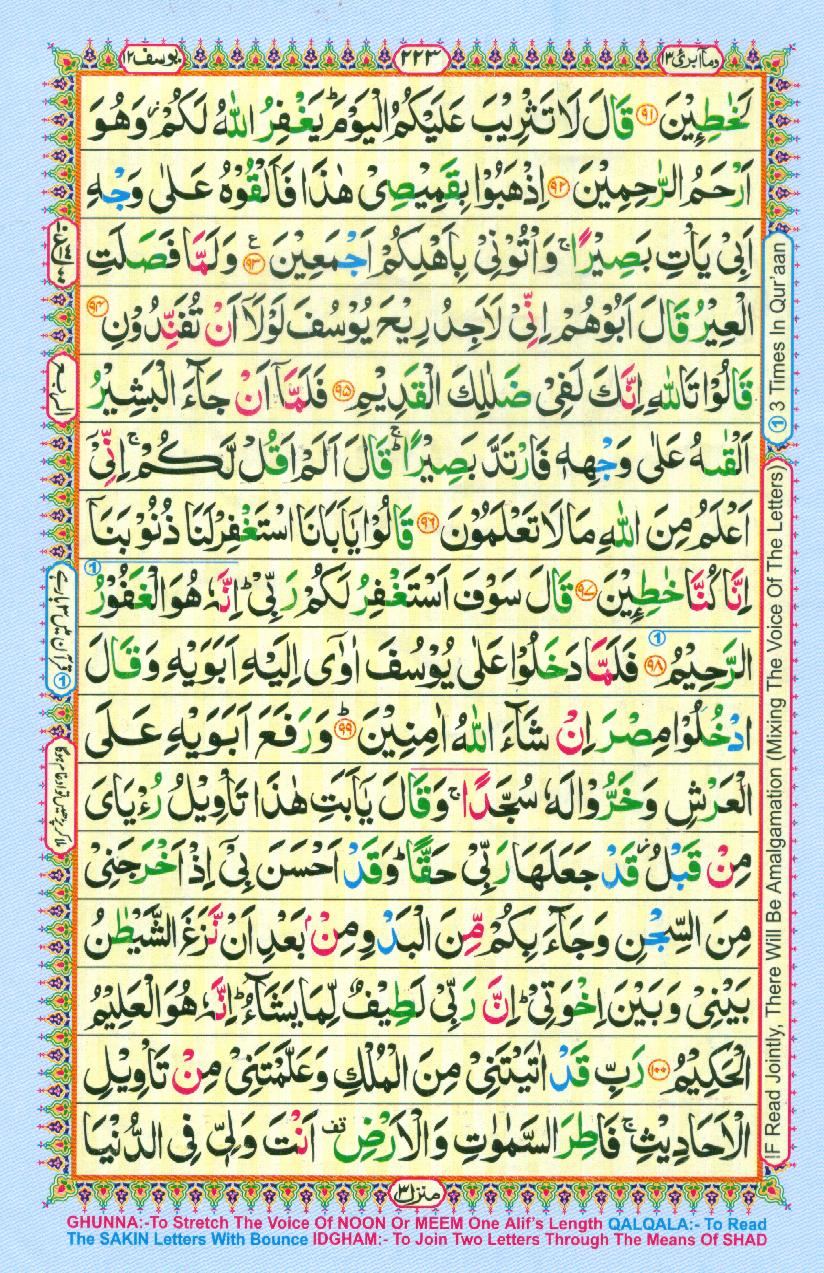 وما ابرئ ١٣
٢٢٣
يوسف ١٢
لَخٰطِـِٕيْنَ ﴿٩١﴾ قَالَ لَا تَثْرِيْبَ عَلَيْكُمُ الْيَوْمَ ؕ يَغْفِرُ اللّٰهُ لَكُمْ ؗ وَهُوَ
اَرْحَمُ الرّٰحِمِيْنَ ﴿٩٢﴾ اِذْهَبُوْا بِقَمِيْصِيْ هٰذَا فَاَلْقُوْهُ عَلٰى وَجْهِ
اَبِيْ يَاْتِ بَصِيْرًا ۚ وَاْتُوْنِيْ بِاَهْلِكُمْ اَجْمَعِيْنَ ﴿٩٣﴾ ع وَلَمَّا فَصَلَتِ
الْعِيْرُ قَالَ اَبُوْهُمْ اِنِّيْ لَاَجِدُ رِيْحَ يُوْسُفَ لَوْلَاۤ اَنْ تُفَنِّدُوْنِ ﴿٩٤﴾
قَالُوْا تَاللّٰهِ اِنَّكَ لَفِيْ ضَلٰلِكَ الْقَدِيْمِ ﴿٩٥﴾ فَلَمَّاۤ اَنْ جَآءَ الْبَشِيْرُ
اَلْقٰىهُ عَلٰى وَجْهِهٖ فَارْتَدَّ بَصِيْرًا ۚ قَالَ اَلَمْ اَقُلْ لَّكُمْ ۚ اِنِّيْۤ
اَعْلَمُ مِنَ اللّٰهِ مَا لَا تَعْلَمُوْنَ ﴿٩٦﴾ قَالُوْا يٰۤاَبَانَا اسْتَغْفِرْ لَنَا ذُنُوْبَنَاۤ
اِنَّا كُنَّا خٰطِـِٕيْنَ ﴿٩٧﴾ قَالَ سَوْفَ اَسْتَغْفِرُ لَكُمْ رَبِّيْ ؕ اِنَّهٗ هُوَ الْغَفُوْرُ
الرَّحِيْمُ ﴿٩٨﴾ فَلَمَّا دَخَلُوْا عَلٰى يُوْسُفَ اٰوٰۤى اِلَيْهِ اَبَوَيْهِ وَقَالَ
ادْخُلُوْا مِصْرَ اِنْ شَآءَ اللّٰهُ اٰمِنِيْنَ ﴿٩٩﴾ؕ وَرَفَعَ اَبَوَيْهِ عَلَى
الْعَرْشِ وَخَرُّوْا لَهٗ سُجَّدًا ۚ وَقَالَ يٰۤاَبَتِ هٰذَا تَاْوِيْلُ رُءْيَايَ
مِنْ قَبْلُ ؗ قَدْ جَعَلَهَا رَبِّيْ حَقًّا ؕ وَقَدْ اَحْسَنَ بِيْۤ اِذْ اَخْرَجَنِيْ
مِنَ السِّجْنِ وَجَآءَ بِكُمْ مِّنَ الْبَدْوِ مِنْۢ بَعْدِ اَنْ نَّزَغَ الشَّيْطٰنُ
بَيْنِيْ وَبَيْنَ اِخْوَتِيْ ؕ اِنَّ رَبِّيْ لَطِيْفٌ لِّمَا يَشَآءُ ؕ اِنَّهٗ هُوَ الْعَلِيْمُ
الْحَكِيْمُ ﴿١٠٠﴾ رَبِّ قَدْ اٰتَيْتَنِيْ مِنَ الْمُلْكِ وَعَلَّمْتَنِيْ مِنْ تَاْوِيْلِ
الْاَحَادِيْثِ ۚ فَاطِرَ السَّمٰوٰتِ وَالْاَرْضِ قف اَنْتَ وَلِيّٖ فِي الدُّنْيَا
① 3 Times In Qur'aan
IF Read Jointly, There Will Be Amalgamation (Mixing The Voice Of The Letters)
الربع
① قرآن میں ۳ بار ہے
ملا کر پڑھیں تو ادغام ہوگا
منزل ٣
GHUNNA:-To Stretch The Voice Of NOON Or MEEM One Alif's Length QALQALA:- To Read
The SAKIN Letters With Bounce IDGHAM:- To Join Two Letters Through The Means Of SHAD